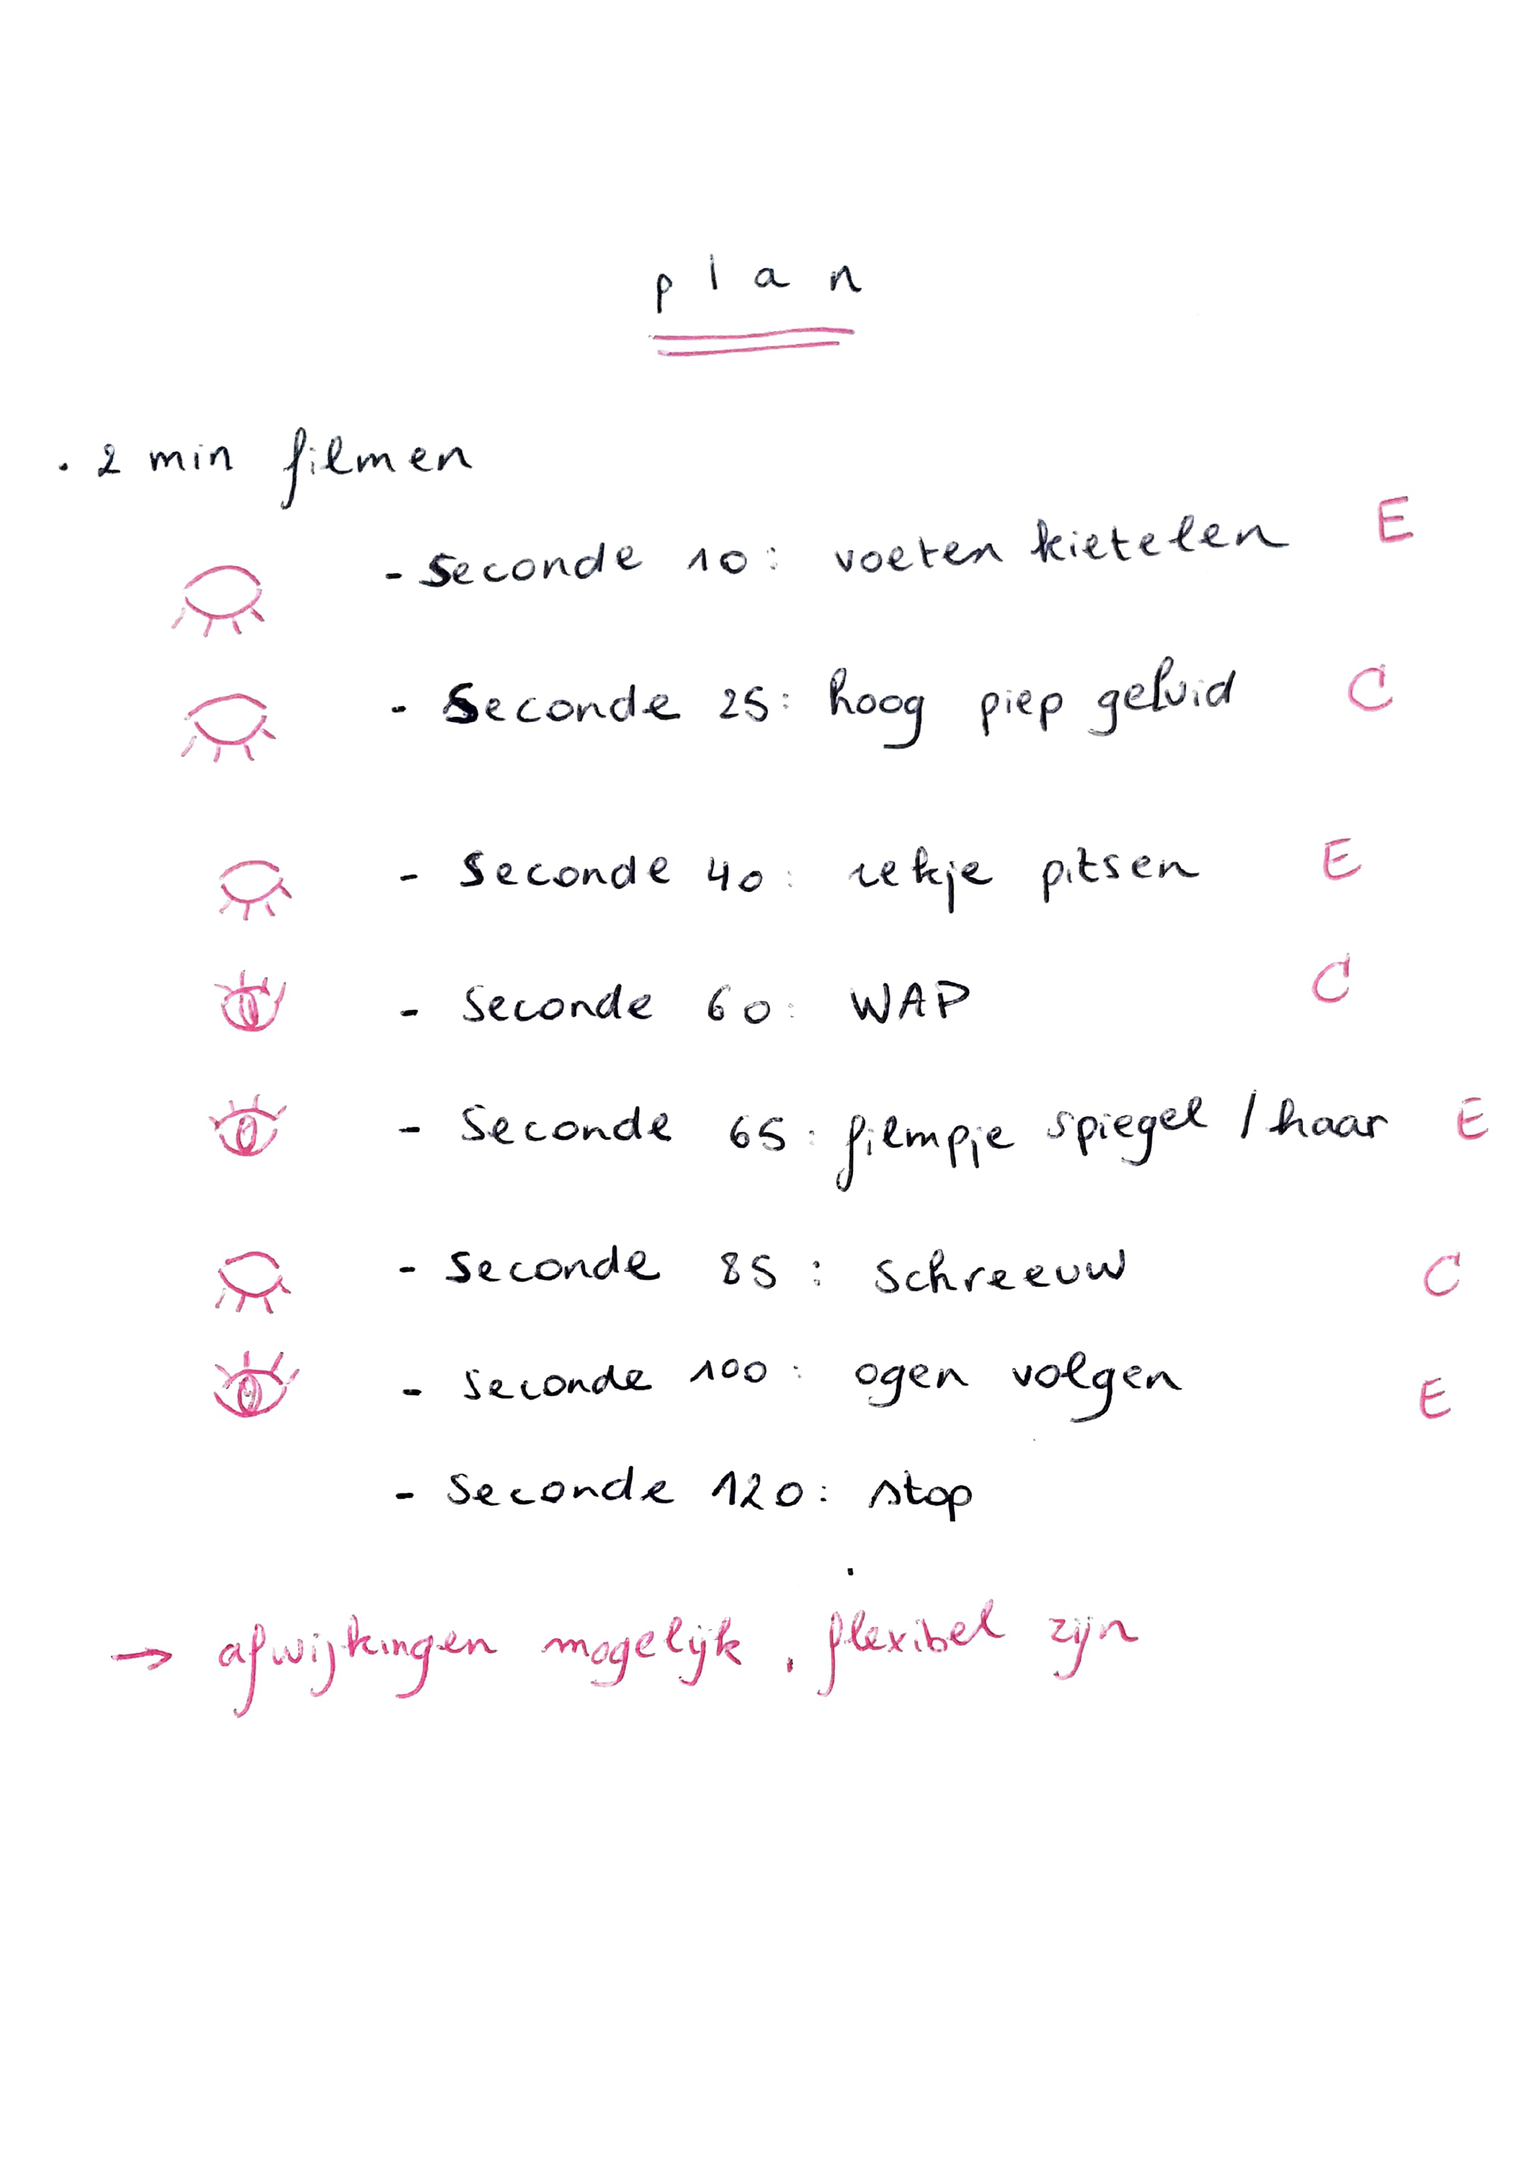 plan
. 2 min filmen
- Seconde 10: voeten kietelen E
- Seconde 25: hoog piep geluid C
- Seconde 40: rekje pitsen E
- Seconde 60: WAP C
- Seconde 65: filmpje spiegel / haar E
- Seconde 85: schreeuw C
- Seconde 100: ogen volgen E
- Seconde 120: stop
→ afwijkingen mogelijk, flexibel zijn